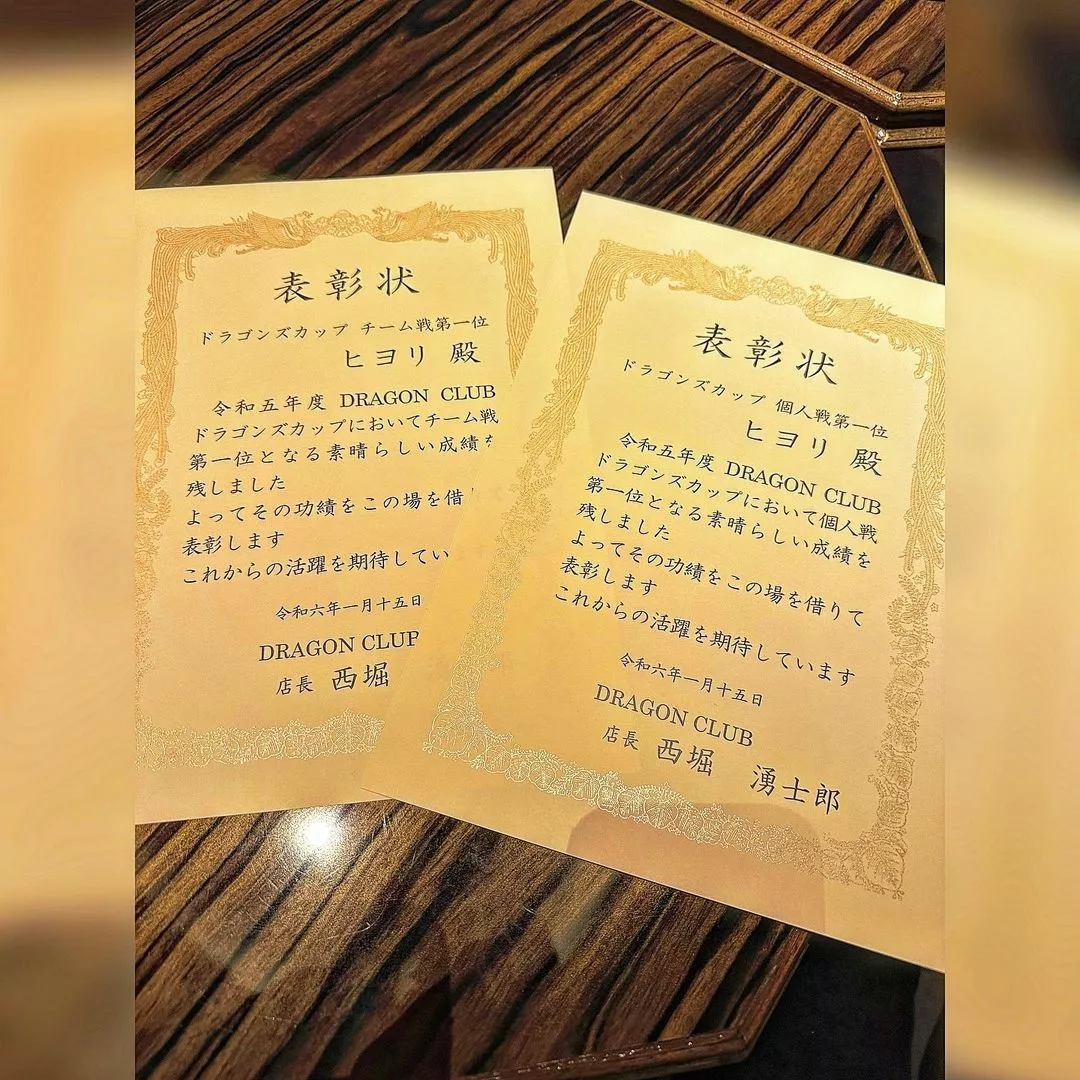 表彰状
ドラゴンズカップ チーム戦第一位
ヒヨリ 殿
令和五年度 DRAGON CLUB
ドラゴンズカップにおいてチーム戦
第一位となる素晴らしい成績
残しました
よってその功績をこの場を借
表彰します
これからの活躍を期待してい
令和六年一月十五日
DRAGON CLU
店長 西堀
表彰状
ドラゴンズカップ 個人戦第一位
ヒヨリ 殿
令和五年度 DRAGON CLUB
ドラゴンズカップにおいて個人戦
第一位となる素晴らしい成績を
残しました
よってその功績をこの場を借りて
表彰します
これからの活躍を期待しています
令和六年一月十五日
DRAGON CLUB
店長 西堀 湧士郎